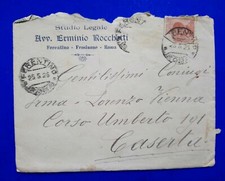 Studio Legale
Avv. Erminio Rocchetti
Ferentino - Frosinone - Roma
FERENTINO
25.5.26
Gentilissimi Coniugi
Irma - Lorenzo Vienna
Corso Umberto 101
Caserta